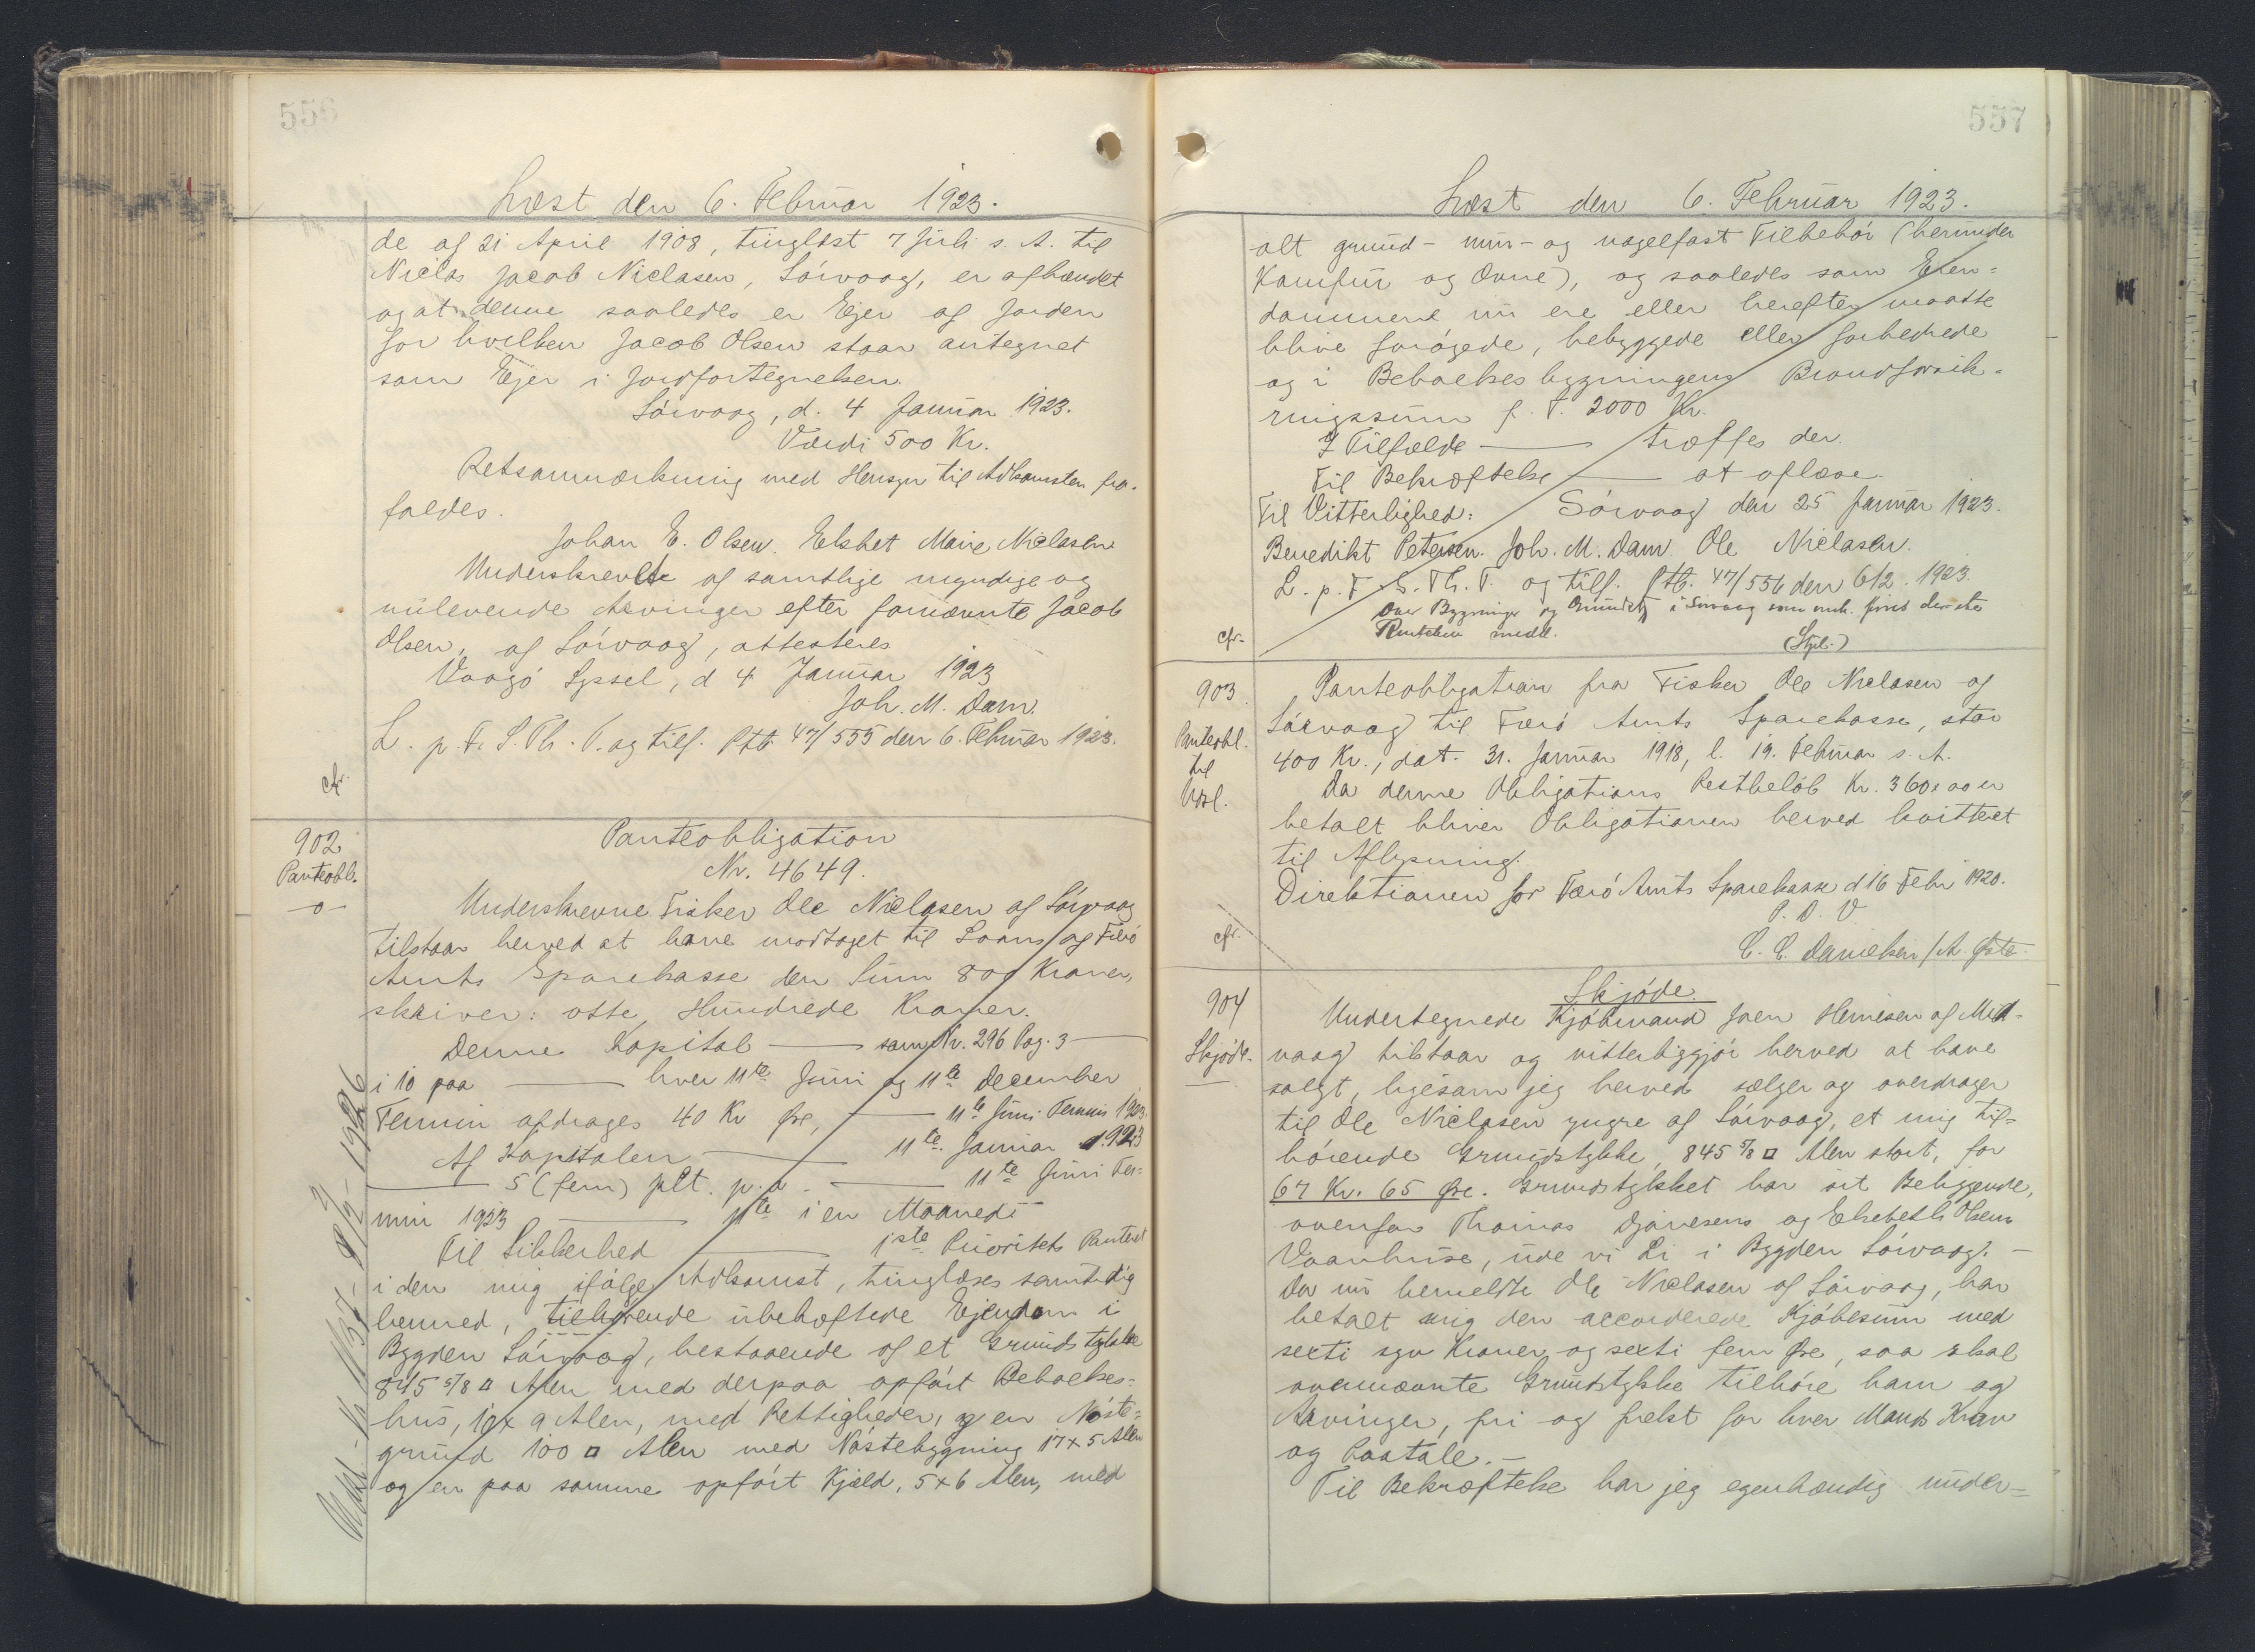 556
Læst den 6. Februar 1923.
de af 21 April 1908, tinglæst 7 Juli s. A. til
Niclas Jacob Niclasen, Sórvaag, er afhændet
og at denne saaledes er Ejer af Jorden
for hvilken Jacob Olsen staar antegnet
som Ejer i Jordfortegnelsen.
Sórvaag, d. 4 Januar 1923.
Værdi 500 Kr.
Retsanmærkning med Hensyn til Adkomsten fra-
faldes.
Johan E. Olsen. Elsbet Marie Niclasen
Underskrevet af samtlige myndige og
nulevende Arvinger efter fornævnte Jacob
Olsen, af Sórvaag, attesteres
Vaagó Syssel, d 4 Januar 1923
Joh. M. Dam.
L. p. F. S. Th. T. og tilf. Ptb. 47/555 den 6. Februar 1923.
cfr.
902
Panteobl.
-o-
Panteobligation
Nr. 4649.
Underskrevne Fisker Ole Niclasen af Sórvaag
tilstaar herved at have modtaget til Laans af Færó
Amts Sparekasse den Sum 800 Kroner,
skriver: otte Hundrede Kroner.
Denne Kapital — som Nr. 296 Pag. 3 —
i 10 paa — hver 11te Juni og 11te December
Termin afdrages 40 Kr Øre, — 11te Juni Termin 1923.
Af Kapitalen — 11te Januar 1923
— 5 (fem) pCt. p. a. — 11te Juni Ter-
min 1923 — 11te i en Maaned
Til Sikkerhed — 1ste Prioritets Panteret
i den mig ifólge Adkomst, tinglæses samtidig
hermed, tilhórende ubehæftede Ejendom i
Bygden Sórvaag, bestaaende af et Grundstykke
845 5/8 □ Alen med derpaa opfórt Beboelses-
hus, 10 x 9 Alen, med Rettigheder, og en Nóste-
grund 100 □ Alen med Nóstebygning 17 x 5 Alen
og en paa samme opfórt Kjæld, 5 x 6 Alen, med
557
Læst den 6. Februar 1923.
alt grund- mur- og nagelfast Tilbehór (herunder
Komfur og Ovne), og saaledes som Ejen-
dommene nu ere eller herefter maatte
blive forógede, bebyggede eller forbedrede
og i Beboelsesbygningens Brandforsik-
ringssum p. T. 2000 Kr.
I Tilfælde — træffes der.
Til Bekræftelse — at oplæse.
Til Vitterlighed: Sórvaag den 25 Januar 1923.
Benedikt Petersen. Joh. M. Dam Ole Niclasen.
L. p. F. S. Th. T. og tilf. Ptb. 47/556 den 6/2. 1923.
Over Bygninger og Grundst. i Sórvaag som anh. findes der ikke
Panteheft. meddt.
(Stpl.)
cfr.
903
Panteobl.
til
Udsl.
Panteobligation fra Fisker Ole Niclasen af
Sórvaag til Færó Amts Sparekasse, stor
400 Kr., dat. 31. Januar 1918, l. 19. Februar s. A.
Da denne Obligations Restbelób Kr. 360,00 er
betalt bliver Obligationen herved kvitteret
til Aflysning.
Direktionen for Færó Amts Sparekasse d 16 Febr 1920.
P. D. V
C. C. Danielsen / A. Øste.
cfr.
904
Skjóde.
Skjóde.
Undertegnede Kjóbmand Joen Henesen af Mid-
vaag tilstaar og vitterliggjór herved at have
solgt, ligesom jeg herved sælger og overdrager
til Ole Niclasen yngre af Sórvaag, et mig til-
hórende Grundstykke, 845 5/8 □ Alen stort, for
67 Kr. 65 Øre. Grundstykket har sit Beliggende,
ovenfor Thomas Djónesens og Elsebeth Olsens
Vaanhuse, ude vi Li i Bygden Sórvaag. —
Da nu bemeldte Ole Niclasen af Sórvaag, har
betalt mig den accorderede Kjóbesum med
sexti syv Kroner og sexti fem Øre, saa skal
ovennævnte Grundstykke tilhóre ham og
Arvinger, fri og frelst for hver Mands Krav
og Paatale. —
Til Bekræftelse har jeg egenhændig under-